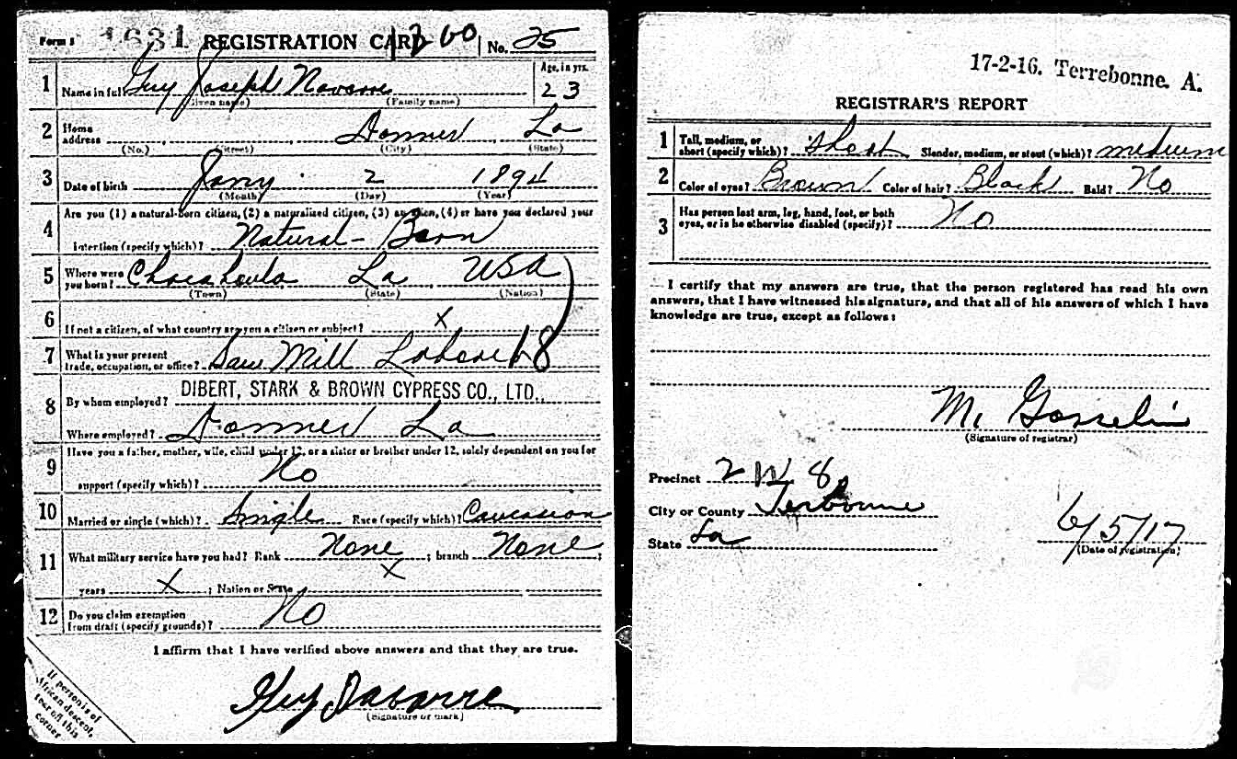 Form 1 1631 REGISTRATION CARD 1260 No. 25
1 Name in full Guy Joseph Navarre Age, in yrs. 23
(Given name) (Family name)
2 Home address Donner La
(No.) (Street) (City) (State)
3 Date of birth Jany. 2 1894
(Month) (Day) (Year)
4 Are you (1) a natural-born citizen, (2) a naturalized citizen, (3) an alien, (4) or have you declared your
intention (specify which)? Natural-Born
5 Where were you born? La USA
(Town) (State) (Nation)
6 If not a citizen, of what country are you a citizen or subject? X
7 What is your present trade, occupation, or office? Saw Mill Laborer 68
8 By whom employed? DIBERT, STARK & BROWN CYPRESS CO., LTD.,
Where employed? Donner La
9 Have you a father, mother, wife, child under 12, or a sister or brother under 12, solely dependent on you for
support (specify which)? No
10 Married or single (which)? Single Race (specify which)? Caucasion
11 What military service have you had? Rank None ; branch None ;
years X ; Nation or State X
12 Do you claim exemption from draft (specify grounds)? No
I affirm that I have verified above answers and that they are true.
Guy Navarre
(Signature or mark)
If person is of
African descent,
tear off this
corner
17-2-16. Terrebonne. A.
REGISTRAR'S REPORT
1 Tall, medium, or short (specify which)? Short Slender, medium, or stout (which)? medium
2 Color of eyes? Brown Color of hair? Black Bald? No
3 Has person lost arm, leg, hand, foot, or both eyes, or is he otherwise disabled (specify)? No
I certify that my answers are true, that the person registered has read his own
answers, that I have witnessed his signature, and that all of his answers of which I have
knowledge are true, except as follows:
M. Gosselin
(Signature of registrar)
Precinct 2 W 8
City or County Terbonne
State La
6/5/17
(Date of registration)